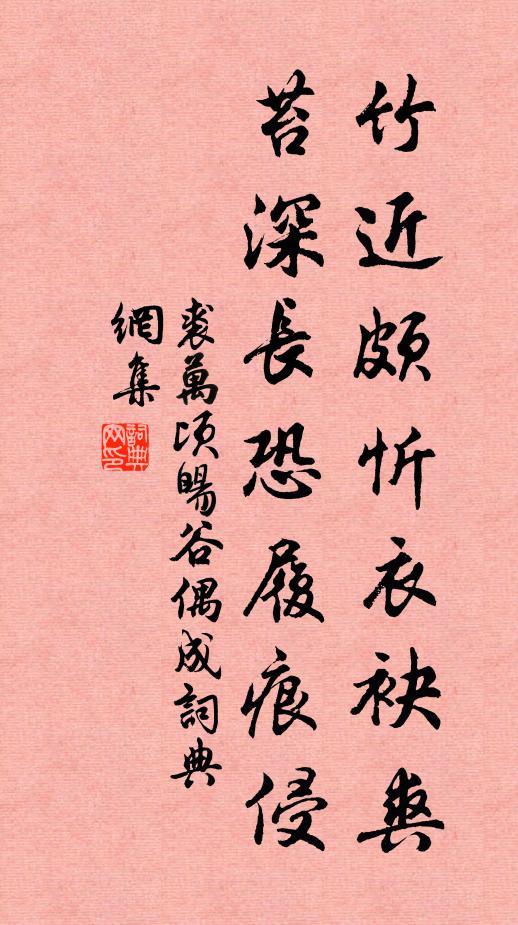 竹近頗忻衣袂爽
苔深長恐履痕侵
裘萬頃暘谷偶成詞典
網集
詞典網印